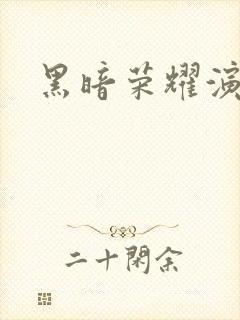 黑暗荣耀演
二十闲余